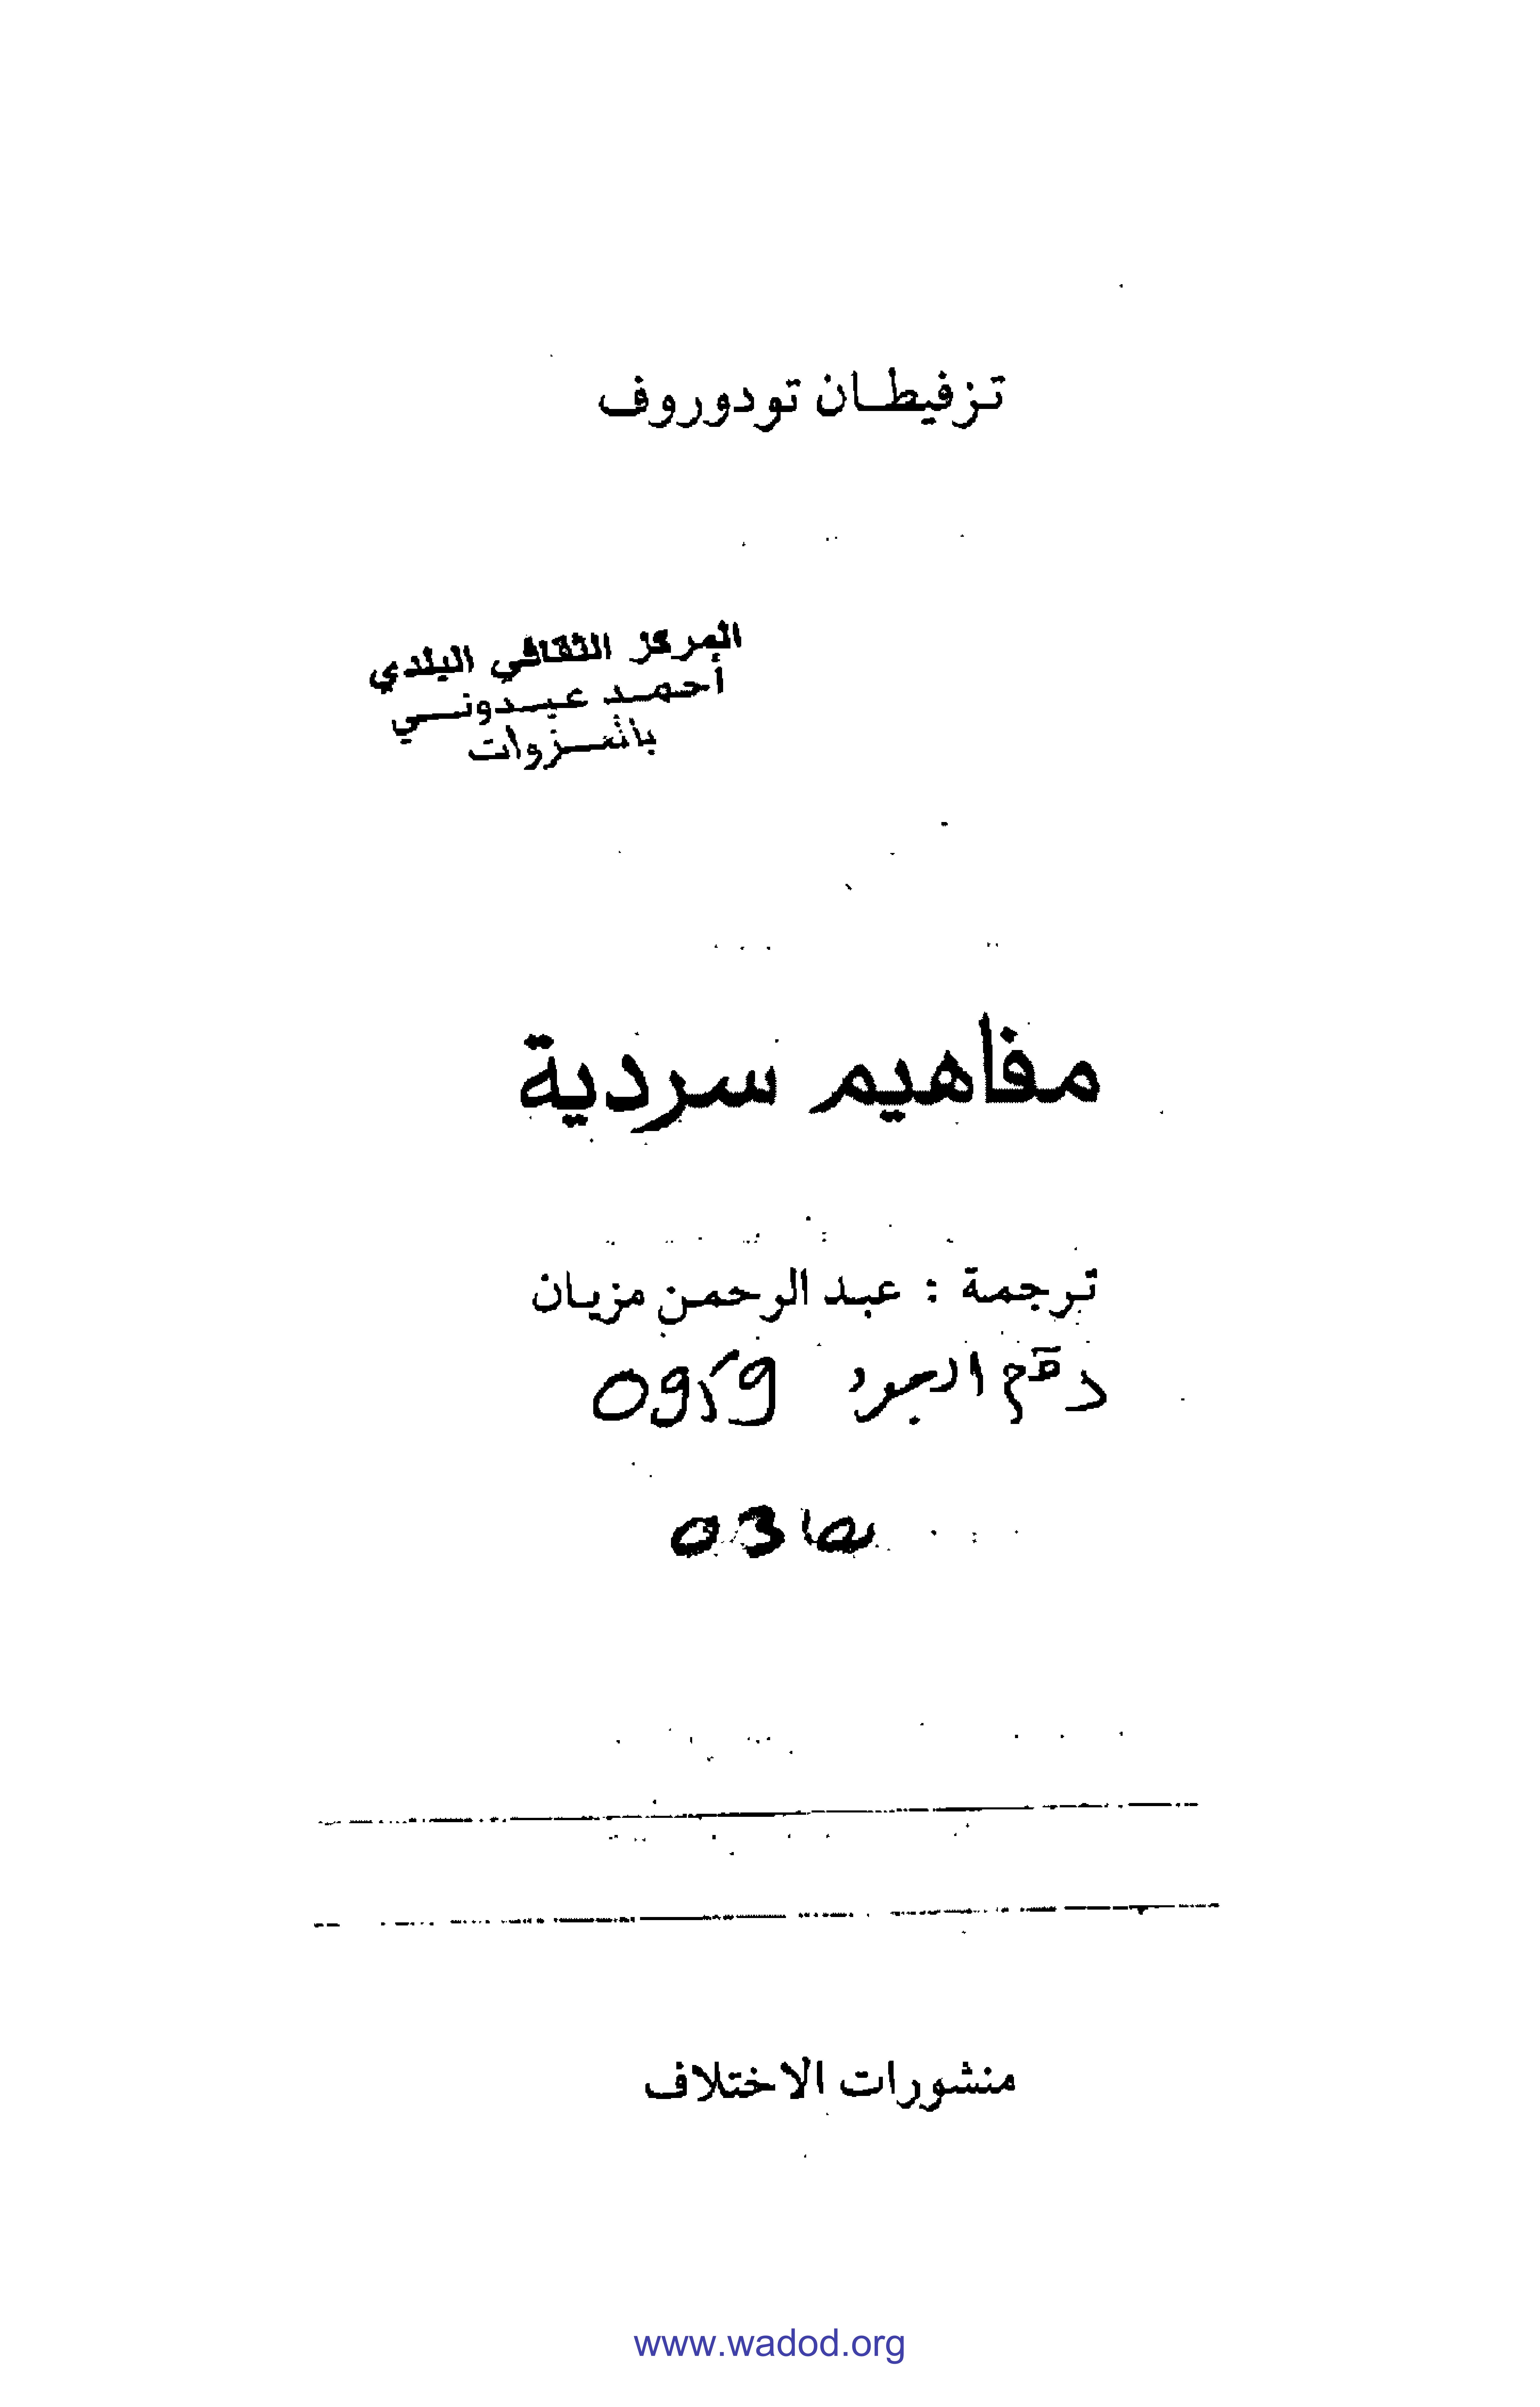 تزفيطان تودوروف
المركز الثقافي البلدي
أحمد عبدوني
بالغزوات
مفاهيم سردية
ترجمة : عبد الرحمن مزيان
رقم الجرد
03
منشورات الاختلاف
www.wadod.org